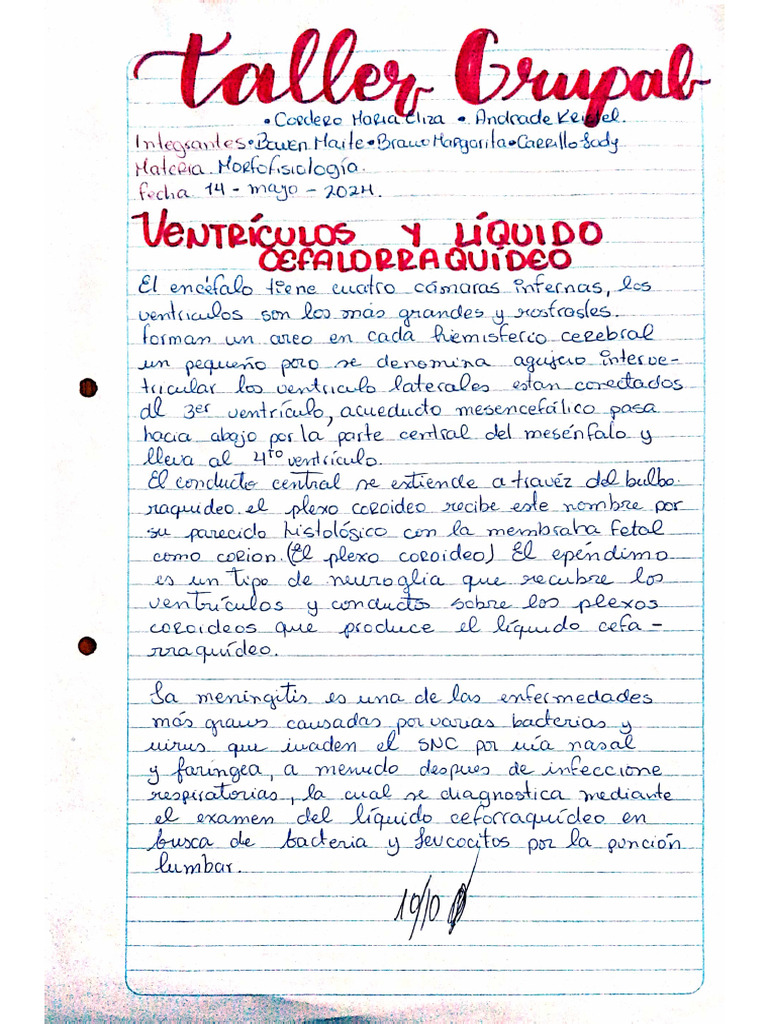 Taller Grupal
• Cordero Maria Eliza • Andrade Kristel.
Integrantes • Bowen Maite • Bravo Margarita • Carrillo Sady
Materia Morfofisiología.
fecha 14 - mayo - 2024.
VENTRÍCULOS Y LÍQUIDO
CEFALORRAQUÍDEO
El encéfalo tiene cuatro cámaras internas, los
ventriculos son los más grandes y rostrales.
forman un arco en cada hemisferio cerebral
un pequeño poro se denomina agujero interve-
tricular los ventriculo laterales estan conectados
al 3er ventrículo, acueducto mesencefálico pasa
hacia abajo por la parte central del mesénfalo y
lleva al 4to ventrículo.
El conducto central se extiende a travéz del bulbo
raquideo. el plexo coroideo recibe este nombre por
su parecido histológico con la membraba fetal
como corion. (El plexo coroideo) El epéndimo
es un tipo de neuroglia que recubre los
ventrículos y conducto sobre los plexos
coroideos que produce el líquido cefa -
rraquídeo.
La meningitis es una de las enfermedades
más graves causadas por varias bacterias y
virus que invaden el SNC por vía nasal
y faringea, a menudo despues de infeccione
respiratorias, la cual se diagnostica mediante
el examen del líquido ceforraquídeo en
busca de bacteria y leucocitos por la punción
lumbar.
19/10